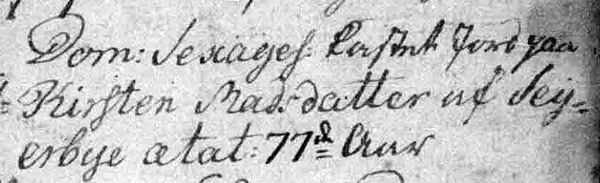 Dom: Sexages: Kastet Jord paa
Kirsten Madsdatter af Sey=
erbye ætat: 77 Aar